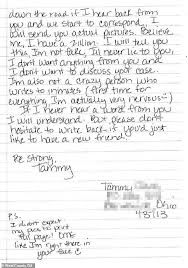 down the road if I hear back from
you and we start to correspond, I
will send you actual pictures. Believe
me, I have a zillion. I will tell you
this I'm not fake, I'd never lie to you,
I don't want anything from you and
I don't want to discuss your case.
I'm also not a crazy person who
writes to inmates (first time for
everything I'm actually very nervous!)
If I never hear a word from you
I will understand. But please don't
hesitate to write back if you'd just
like to have a new friend!
Be strong,
Tammy
Tammy
Ohio
4/5/13
P.S.
I didn't expect
my pics to print
full page! OMG
like I'm right there in
your face